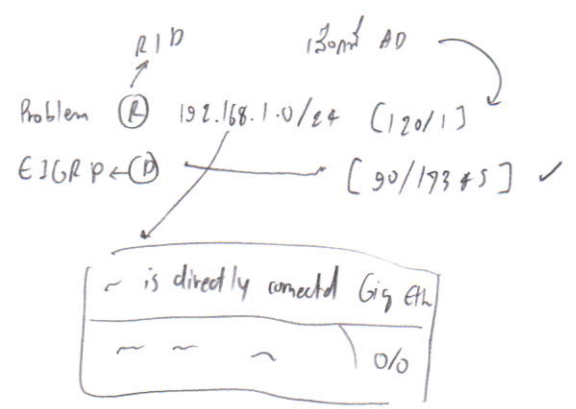 RIP เลือกที่ AD
Problem R 192.168.1.0/24 [120/1]
EIGRP ← D [90/173*5] ✓
~ is directly connectd Gig Eth
~ ~ ~ 0/0